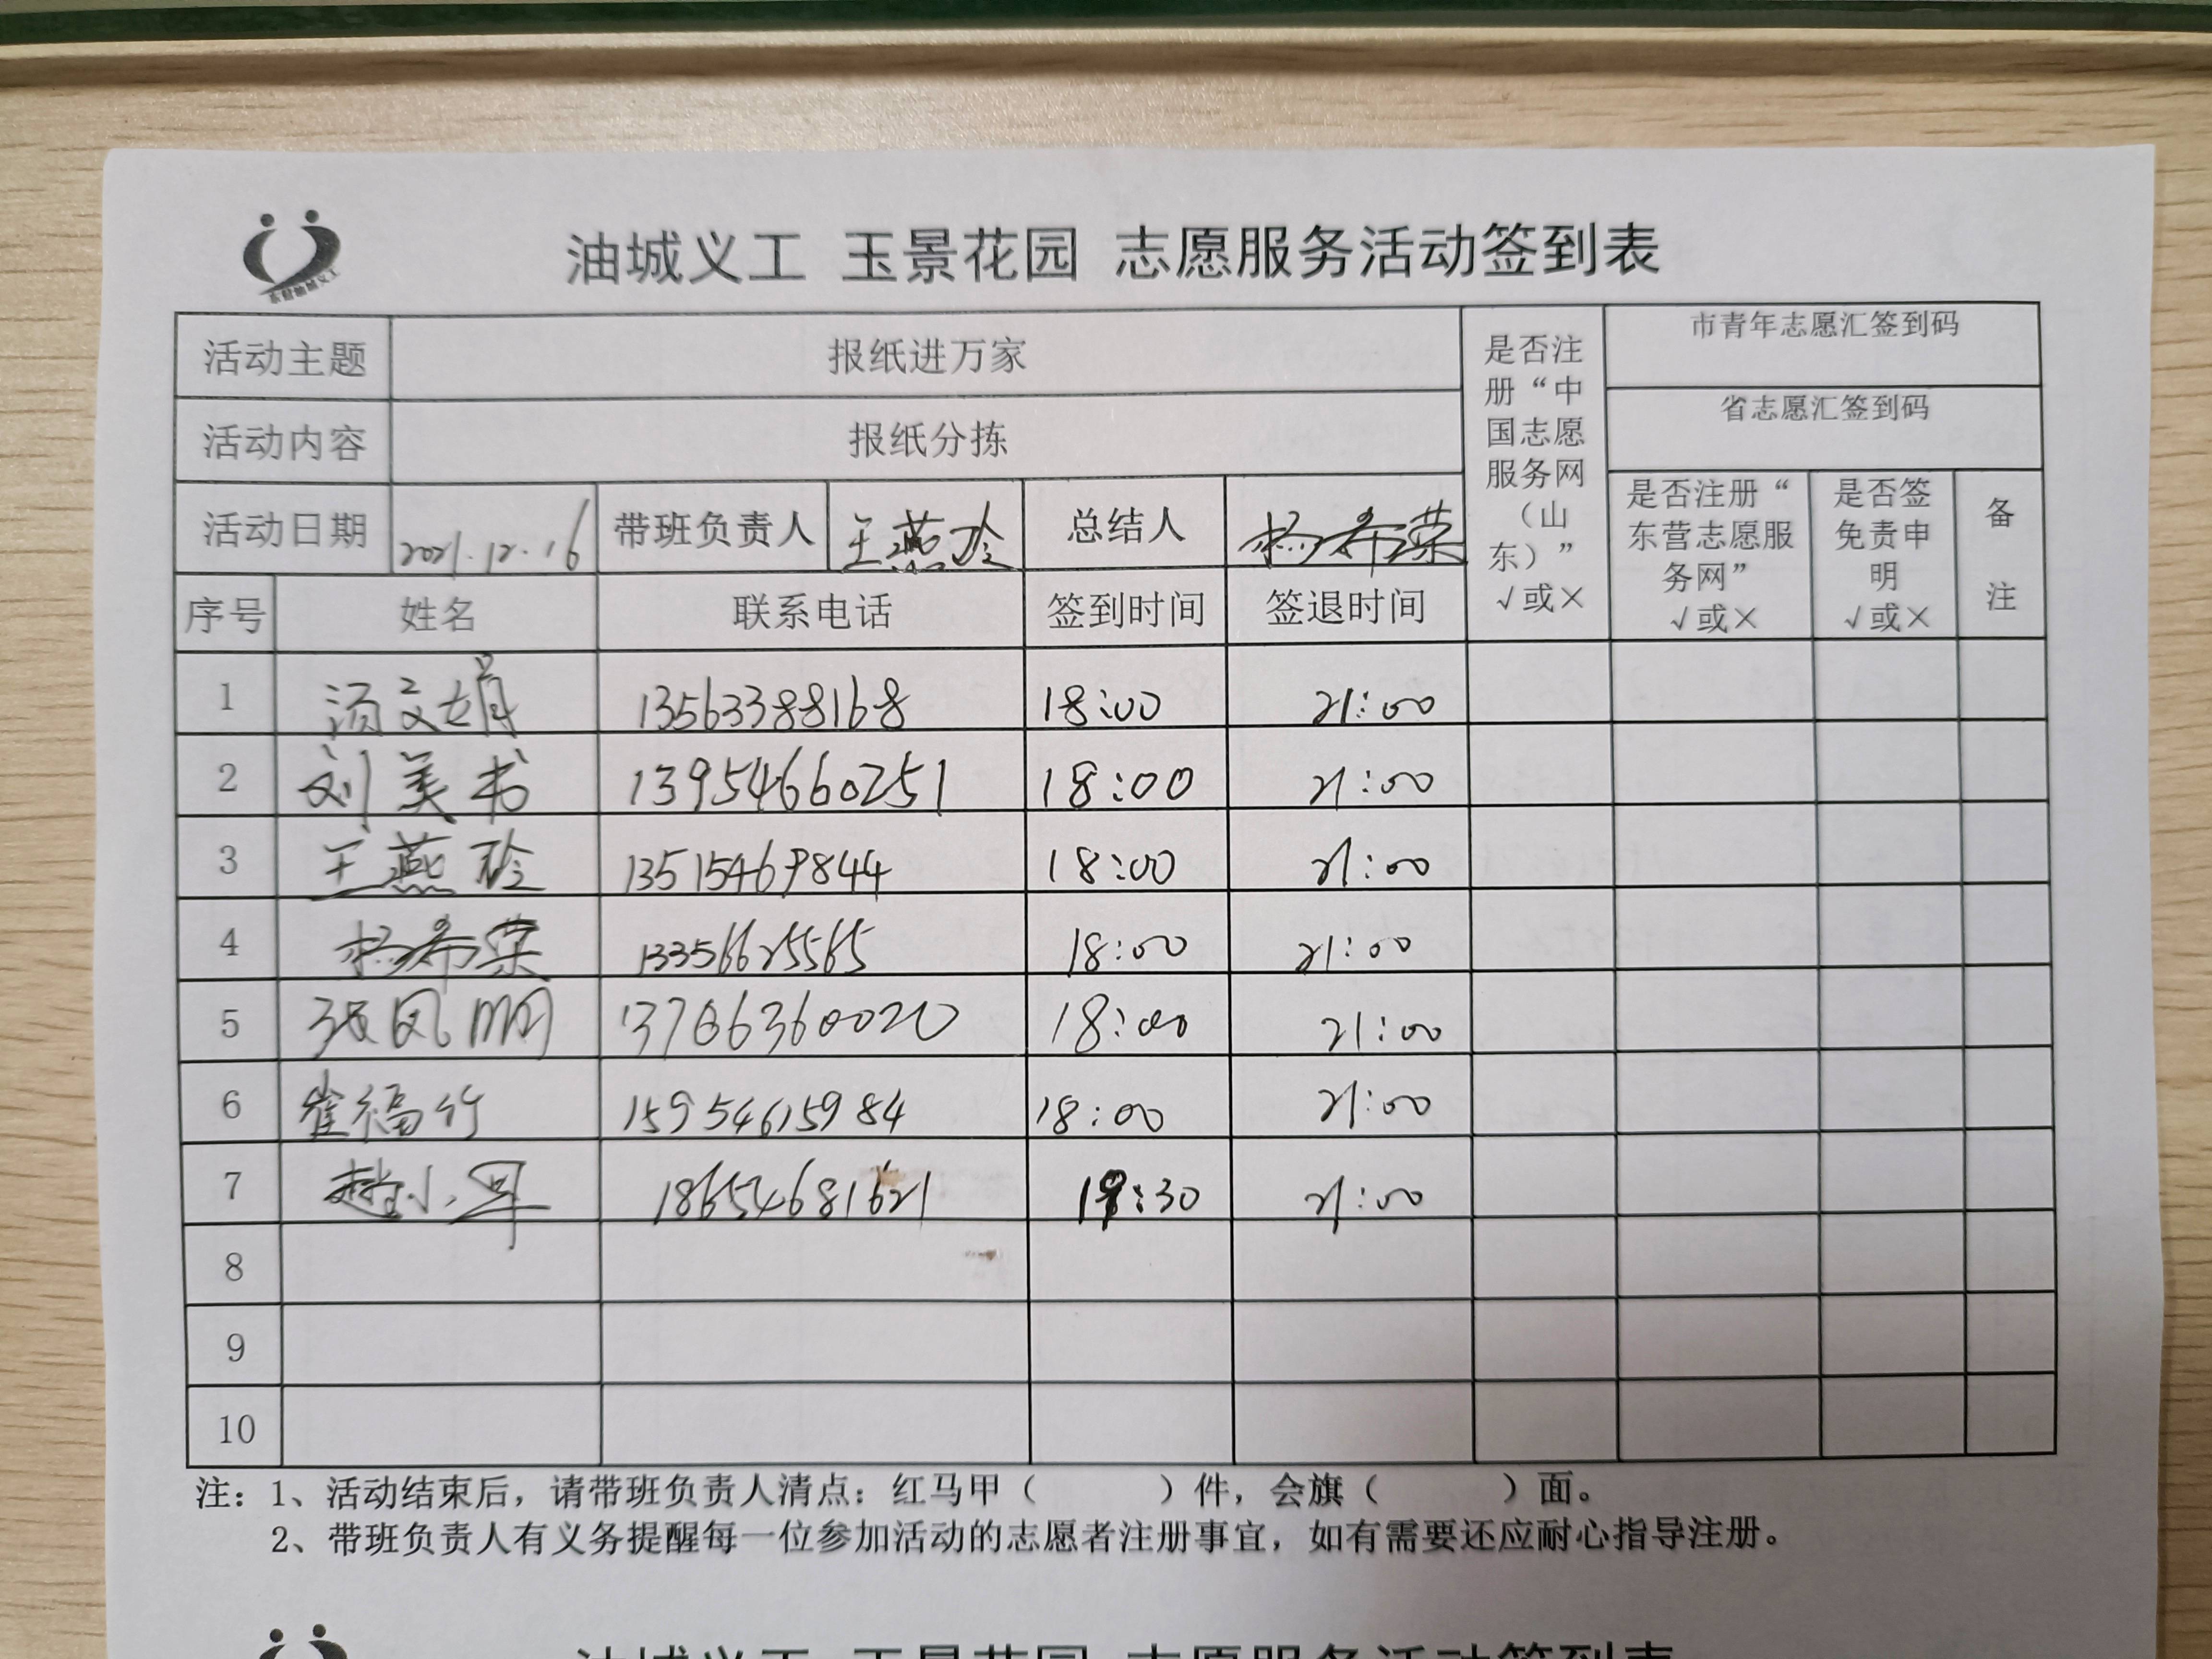 油城义工 玉景花园 志愿服务活动签到表
活动主题 报纸进万家 是否注册“中国志愿服务网（山东）”√或× 市青年志愿汇签到码
省志愿汇签到码
活动内容 报纸分拣
活动日期 2021.12.16 带班负责人 王燕玲 总结人 杨希荣 是否注册“东营志愿服务网”√或× 是否签免责申明√或× 备注
序号 姓名 联系电话 签到时间 签退时间
1 汤文娟 13563388168 18:00 21:00
2 刘美书 13954660251 18:00 21:00
3 王燕玲 13515469844 18:00 21:00
4 杨希荣 13356625565 18:00 21:00
5 张凤明 13706360020 18:00 21:00
6 崔福行 15954615984 18:00 21:00
7 赵小军 18654681621 :30 21:00
8
9
10
注：1、活动结束后，请带班负责人清点：红马甲（ ）件，会旗（ ）面。
2、带班负责人有义务提醒每一位参加活动的志愿者注册事宜，如有需要还应耐心指导注册。
油城义工 玉景花园 志愿服务活动签到表